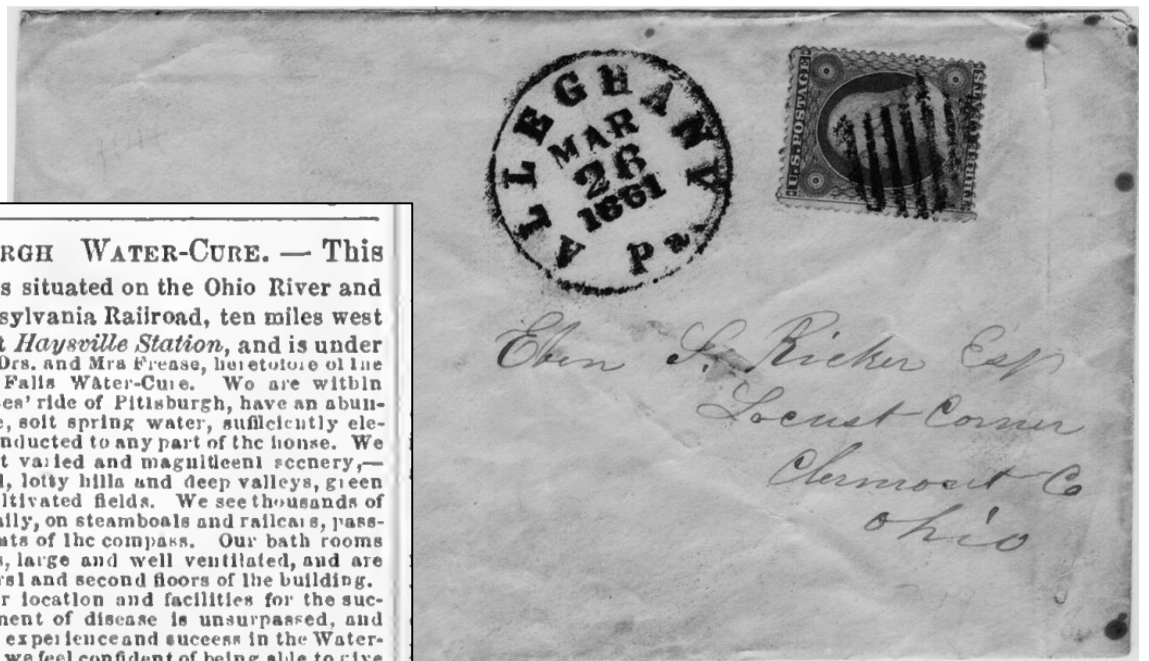 ALLEGHANY Pa.
MAR
26
1861
U.S. POSTAGE
THREE CENTS
Eben S. Ricker Esq
Locust Corner
Clermont Co
Ohio
RGH WATER-CURE. — This
s situated on the Ohio River and
sylvania Railroad, ten miles west
t Haysville Station, and is under
Drs. and Mrs Frease, heretofore of the
Falls Water-Cure. We are within
es' ride of Pittsburgh, have an abun-
e, soft spring water, sufficiently ele-
nducted to any part of the house. We
t varied and magnificent scenery,—
l, lofty hills and deep valleys, green
ltivated fields. We see thousands of
ily, on steamboats and railcars, pass-
nts of the compass. Our bath rooms
s, large and well ventilated, and are
rst and second floors of the building.
r location and facilities for the suc-
ment of disease is unsurpassed, and
experience and success in the Water-
we feel confident of being able to give